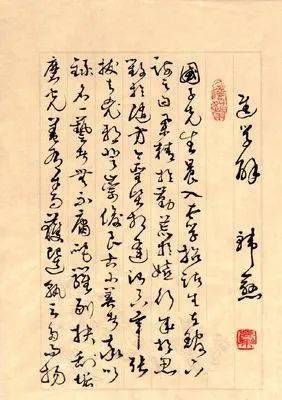 進學解 韓愈
國子先生晨入太學招諸生立館下
誨之曰業精於勤荒於嬉行成於思
毀於隨方今聖賢相逢治具畢張
拔去兇邪登崇俊良占小善者率以
錄名一藝者無不庸爬羅剔抉刮垢
磨光蓋有幸而獲選孰云多而不揚